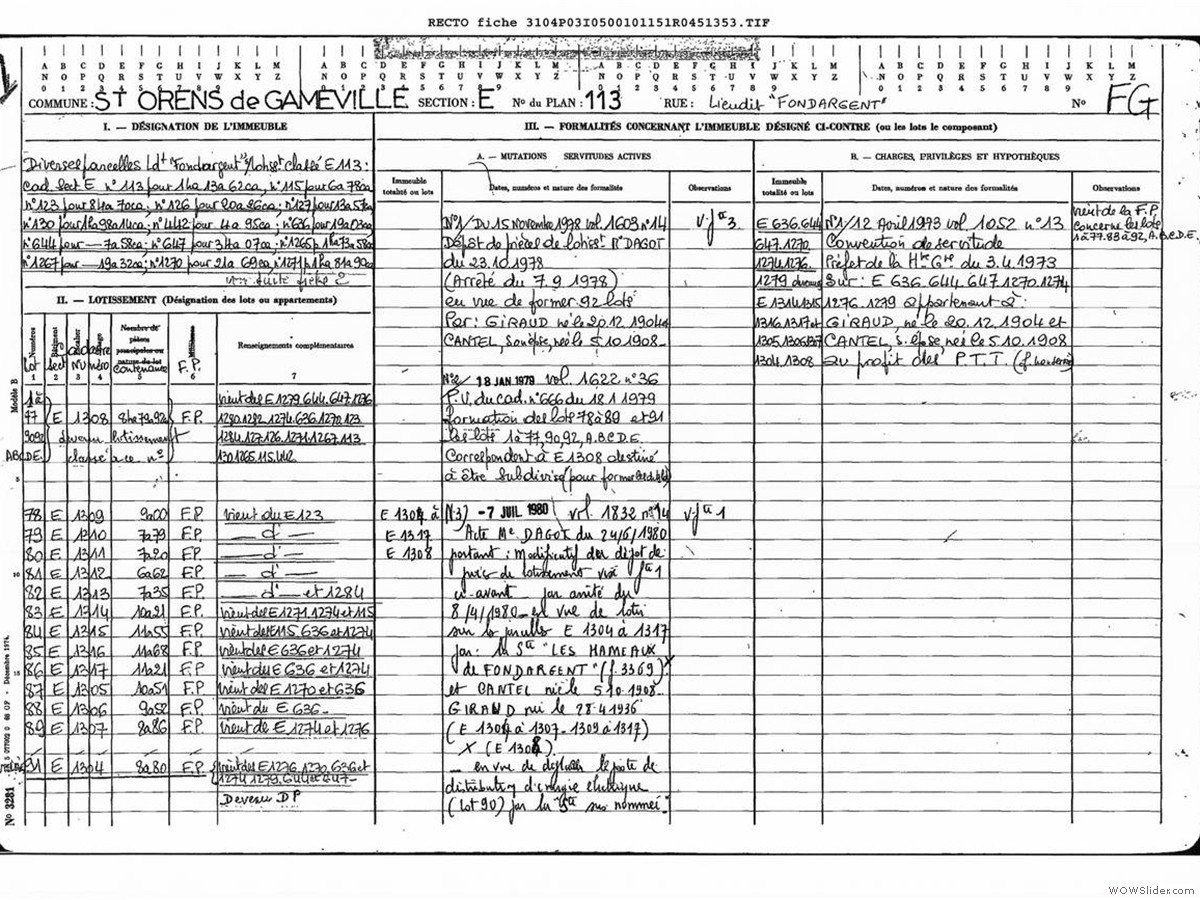 RECTO fiche 3104P03I0500101151R0451353.TIF
COMMUNE: ST ORENS de GAMEVILLE SECTION: E No du PLAN: 113 RUE: Lieudit "FONDARGENT" No FG
I. — DÉSIGNATION DE L'IMMEUBLE
Diverses parcelles Ldt "Fondargent" classé E 113:
cad. sect E n° 113 pour 1ha 13a 62ca, n° 115 pour 6a 78ca
n° 123 pour 84a 70ca; n° 126 pour 20a 86ca; n° 127 pour 13a 57ca
n° 130 pour 1ha 98a 14ca; n° 442 pour 4a 95ca; n° 636 pour 19a 03ca
n° 644 pour — 7a 58ca; n° 647 pour 34a 07ca; n° 1265 p. 1ha 73a 58ca
n° 1267 pour — 19a 32ca; n° 1270 pour 21a 69ca; n° 1271 p 1ha 81a 90ca
voir suite fiche 2
II. — LOTISSEMENT (Désignation des lots ou appartements)
Renseignements complémentaires
1 2 3 4 5 6 7
vient des E 1279.644.647.1276
77 E 1308 8ha 79a 92 F.P. 1280.1282.1274.636.1270.123
9092 devenu lotissement 1284.127.126.1271.1267.113
ABCDE classé à ce n° 130.1265.115.442
78 E 1309 9a00 F.P. vient du E 123
79 E 1210 7a79 F.P. — d° —
80 E 1311 7a20 F.P. — d° —
81 E 1312 6a62 F.P. — d° —
82 E 1313 7a35 F.P. — d° — et 1284
83 E 1314 10a21 F.P. vient des E 1271.1274 et 115
84 E 1315 11a55 F.P. vient des E 115.636 et 1274
85 E 1316 11a68 F.P. vient des E 636 et 1274
86 E 1317 11a21 F.P. vient du E 636 et 1274
87 E 1305 10a51 F.P. vient des E 1270 et 636
88 E 1306 9a52 F.P. vient du E 636
89 E 1307 8a86 F.P. vient du E 1274 et 1276
91 E 1304 8a80 F.P. vient des E 1276.1270.636 et
1274.1279.644 et 647
Devenu DP
III. — FORMALITÉS CONCERNANT L'IMMEUBLE DÉSIGNÉ CI-CONTRE (ou les lots le composant)
A. — MUTATIONS SERVITUDES ACTIVES
Immeuble totalité ou lots
Dates, numéros et nature des formalités
Observations
N°1/ DU 15 Novembre 1978 vol. 1603 n° 14
Dépôt de pièces de lotisst. Me DAGOT
du 23.10.1978
(Arrêté du 7.9.1978)
en vue de former 92 lots
Par: GIRAUD né le 20.12.1904 et
CANTEL, s. épse, née le 5.10.1908-
N°2/ 18 JAN 1979 vol. 1622 n° 36
P.V. du cad. n° 666 du 18.1.1979
formation des lots 78 à 89 et 91
les lots 1 à 77, 90, 92, A.B.C.D.E.
Correspondent à E 1308 destiné
à être subdivisé
E 1304 à N°3) -7 JUIL 1980 vol. 1832 n° 14
E 1317 Acte Me DAGOT du 24/6/1980
E 1308 portant: modificatif du dépôt de
pièces de lotissement visé
ci-avant par arrêté du
8/4/1980 - en vue de lotir
sur les parcelles E 1304 à 1317
par: la Sté "LES HAMEAUX
de FONDARGENT" (f. 3369) X
et CANTEL née le 5.10.1908-
GIRAUD né le 28.4.1936
(E 1304 à 1307-1309 à 1317)
X (E 1308)
— en vue de déplacer le poste de
distribution d'énergie électrique
(lot 90) par la Sté sus nommée
B. — CHARGES, PRIVILÈGES ET HYPOTHÈQUES
Immeuble totalité ou lots
Dates, numéros et nature des formalités
Observations
E 636.644 N°1/ 12 Avril 1973 vol. 1052 n° 13
647.1270 Convention de servitude
1274.1276. Préfet de la Hte Gne du 3.4.1973
1279 devenus Sur: E 636.644.647.1270.1274
E 1314.1315 1276.1279 appartenant à:
1316.1317 et GIRAUD, né le 20.12.1904 et
1305.1306 CANTEL, s. épse, née le 5.10.1908
1304.1308 au profit des P.T.T.
vient de la F.P.
concerne les lots
1 à 77.83 à 92, A.B.C.D.E.
Modèle B
No 3281
WOWSlider.com